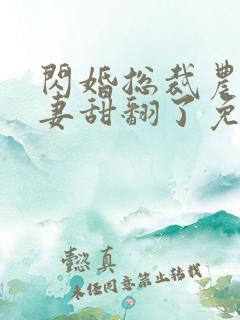 閃婚总裁農
妻甜翻了免
懿真
未任同意禁止转载